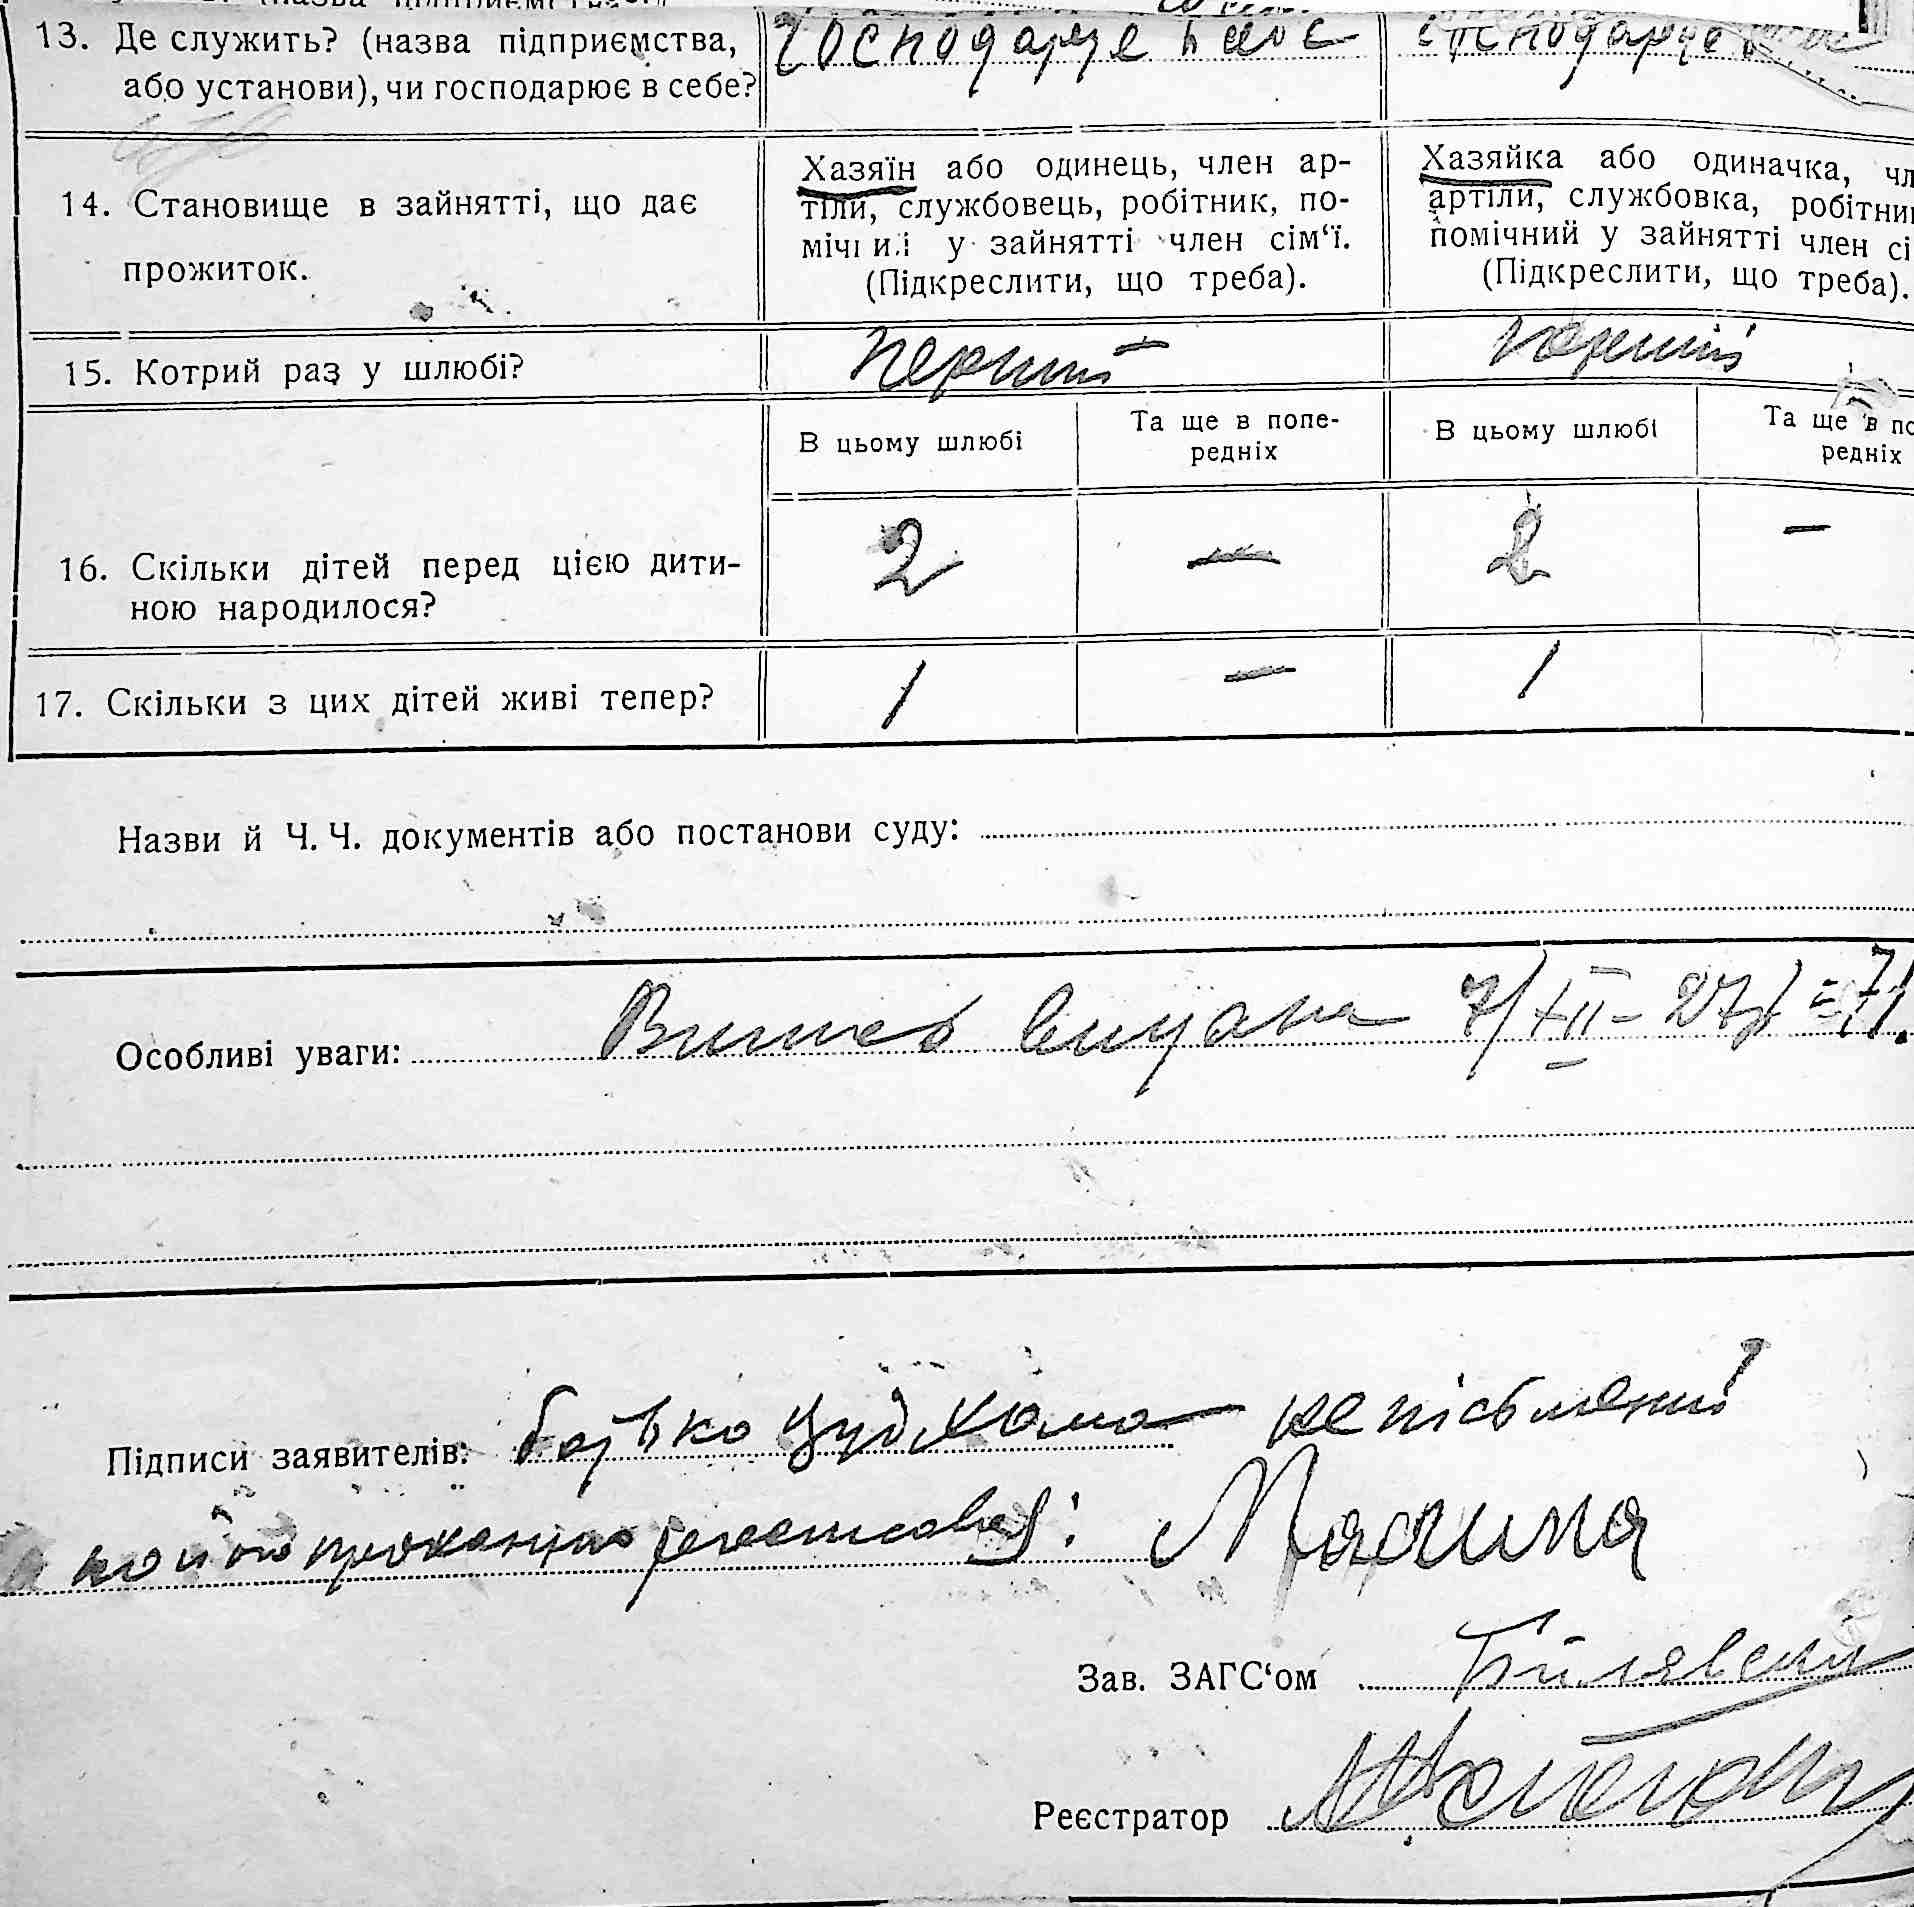 13. Де служить? (назва підприємства, або установи), чи господарює в себе?
господарює в себе
господарює
14. Становище в зайнятті, що дає прожиток.
Хазяїн або одинець, член ар-
тіли, службовець, робітник, по-
мічний у зайнятті член сім‘ї.
(Підкреслити, що треба).
Хазяйка або одиначка, чл
артіли, службовка, робітни
помічний у зайнятті член сі
(Підкреслити, що треба).
15. Котрий раз у шлюбі?
перший
перший
В цьому шлюбі
Та ще в попе-
редніх
В цьому шлюбі
Та ще в по
редніх
16. Скільки дітей перед цією дити-
ною народилося?
2 — 2 —
17. Скільки з цих дітей живі тепер?
1 — 1
Назви й Ч. Ч. документів або постанови суду:
Особливі уваги: Випись видана 7/XII-27р
Підписи заявителів: батько неписьменний
Зав. ЗАГС‘ом
Реєстратор